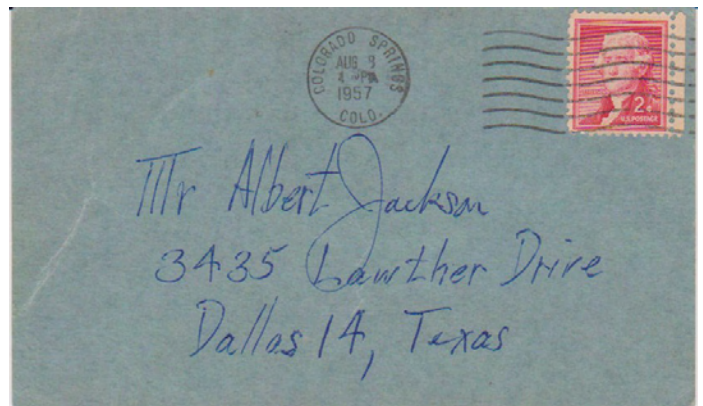 COLORADO SPRINGS
AUG 8
4 - PM
1957
COLO.
2¢
U.S. POSTAGE
Mr Albert Jackson
3435 Lawther Drive
Dallas 14, Texas